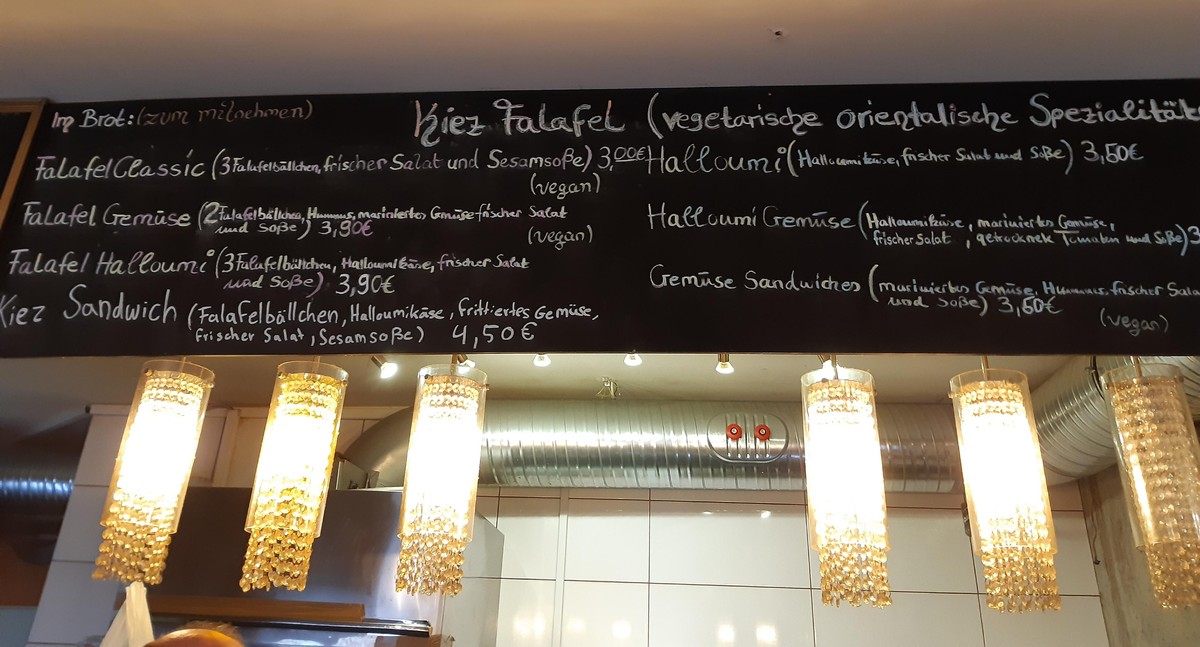 Im Brot: (zum mitnehmen)
Kiez Falafel (vegetarische orientalische Spezialität
Falafel Classic (3 Falafelbällchen, frischer Salat und Sesamsoße) 3,00€
(vegan)
Falafel Gemüse (2 Falafelbällchen, Hummus, mariniertes Gemüse frischer Salat
und Soße) 3,90€
(vegan)
Falafel Halloumi (3 Falafelbällchen, Halloumikäse, frischer Salat
und Soße) 3,90€
Kiez Sandwich (Falafelbällchen, Halloumikäse, frittiertes Gemüse,
frischer Salat, Sesamsoße) 4,50€
Halloumi (Halloumikäse, frischer Salat und Soße) 3,50€
Halloumi Gemüse (Halloumikäse, mariniertes Gemüse,
frischer Salat, getrocknete Tomaten und Soße) 3
Gemüse Sandwiches (mariniertes Gemüse, Hummus, frischer Sala
und Soße) 3,50€
(vegan)